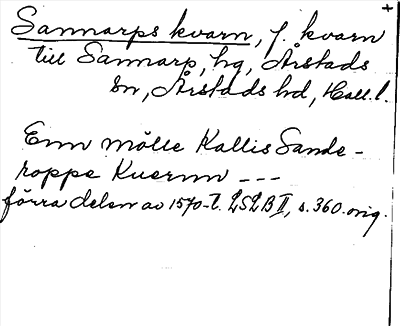 +
Sannarps kvarn, f. kvarn
till Sannarp, hg, Årstads
sn, Årstads hd, Hall. l.
Enn mölle Kallis Sande-
roppe Kuernn ---
förra delen av 1570-t. LSLB II, s. 360. orig.